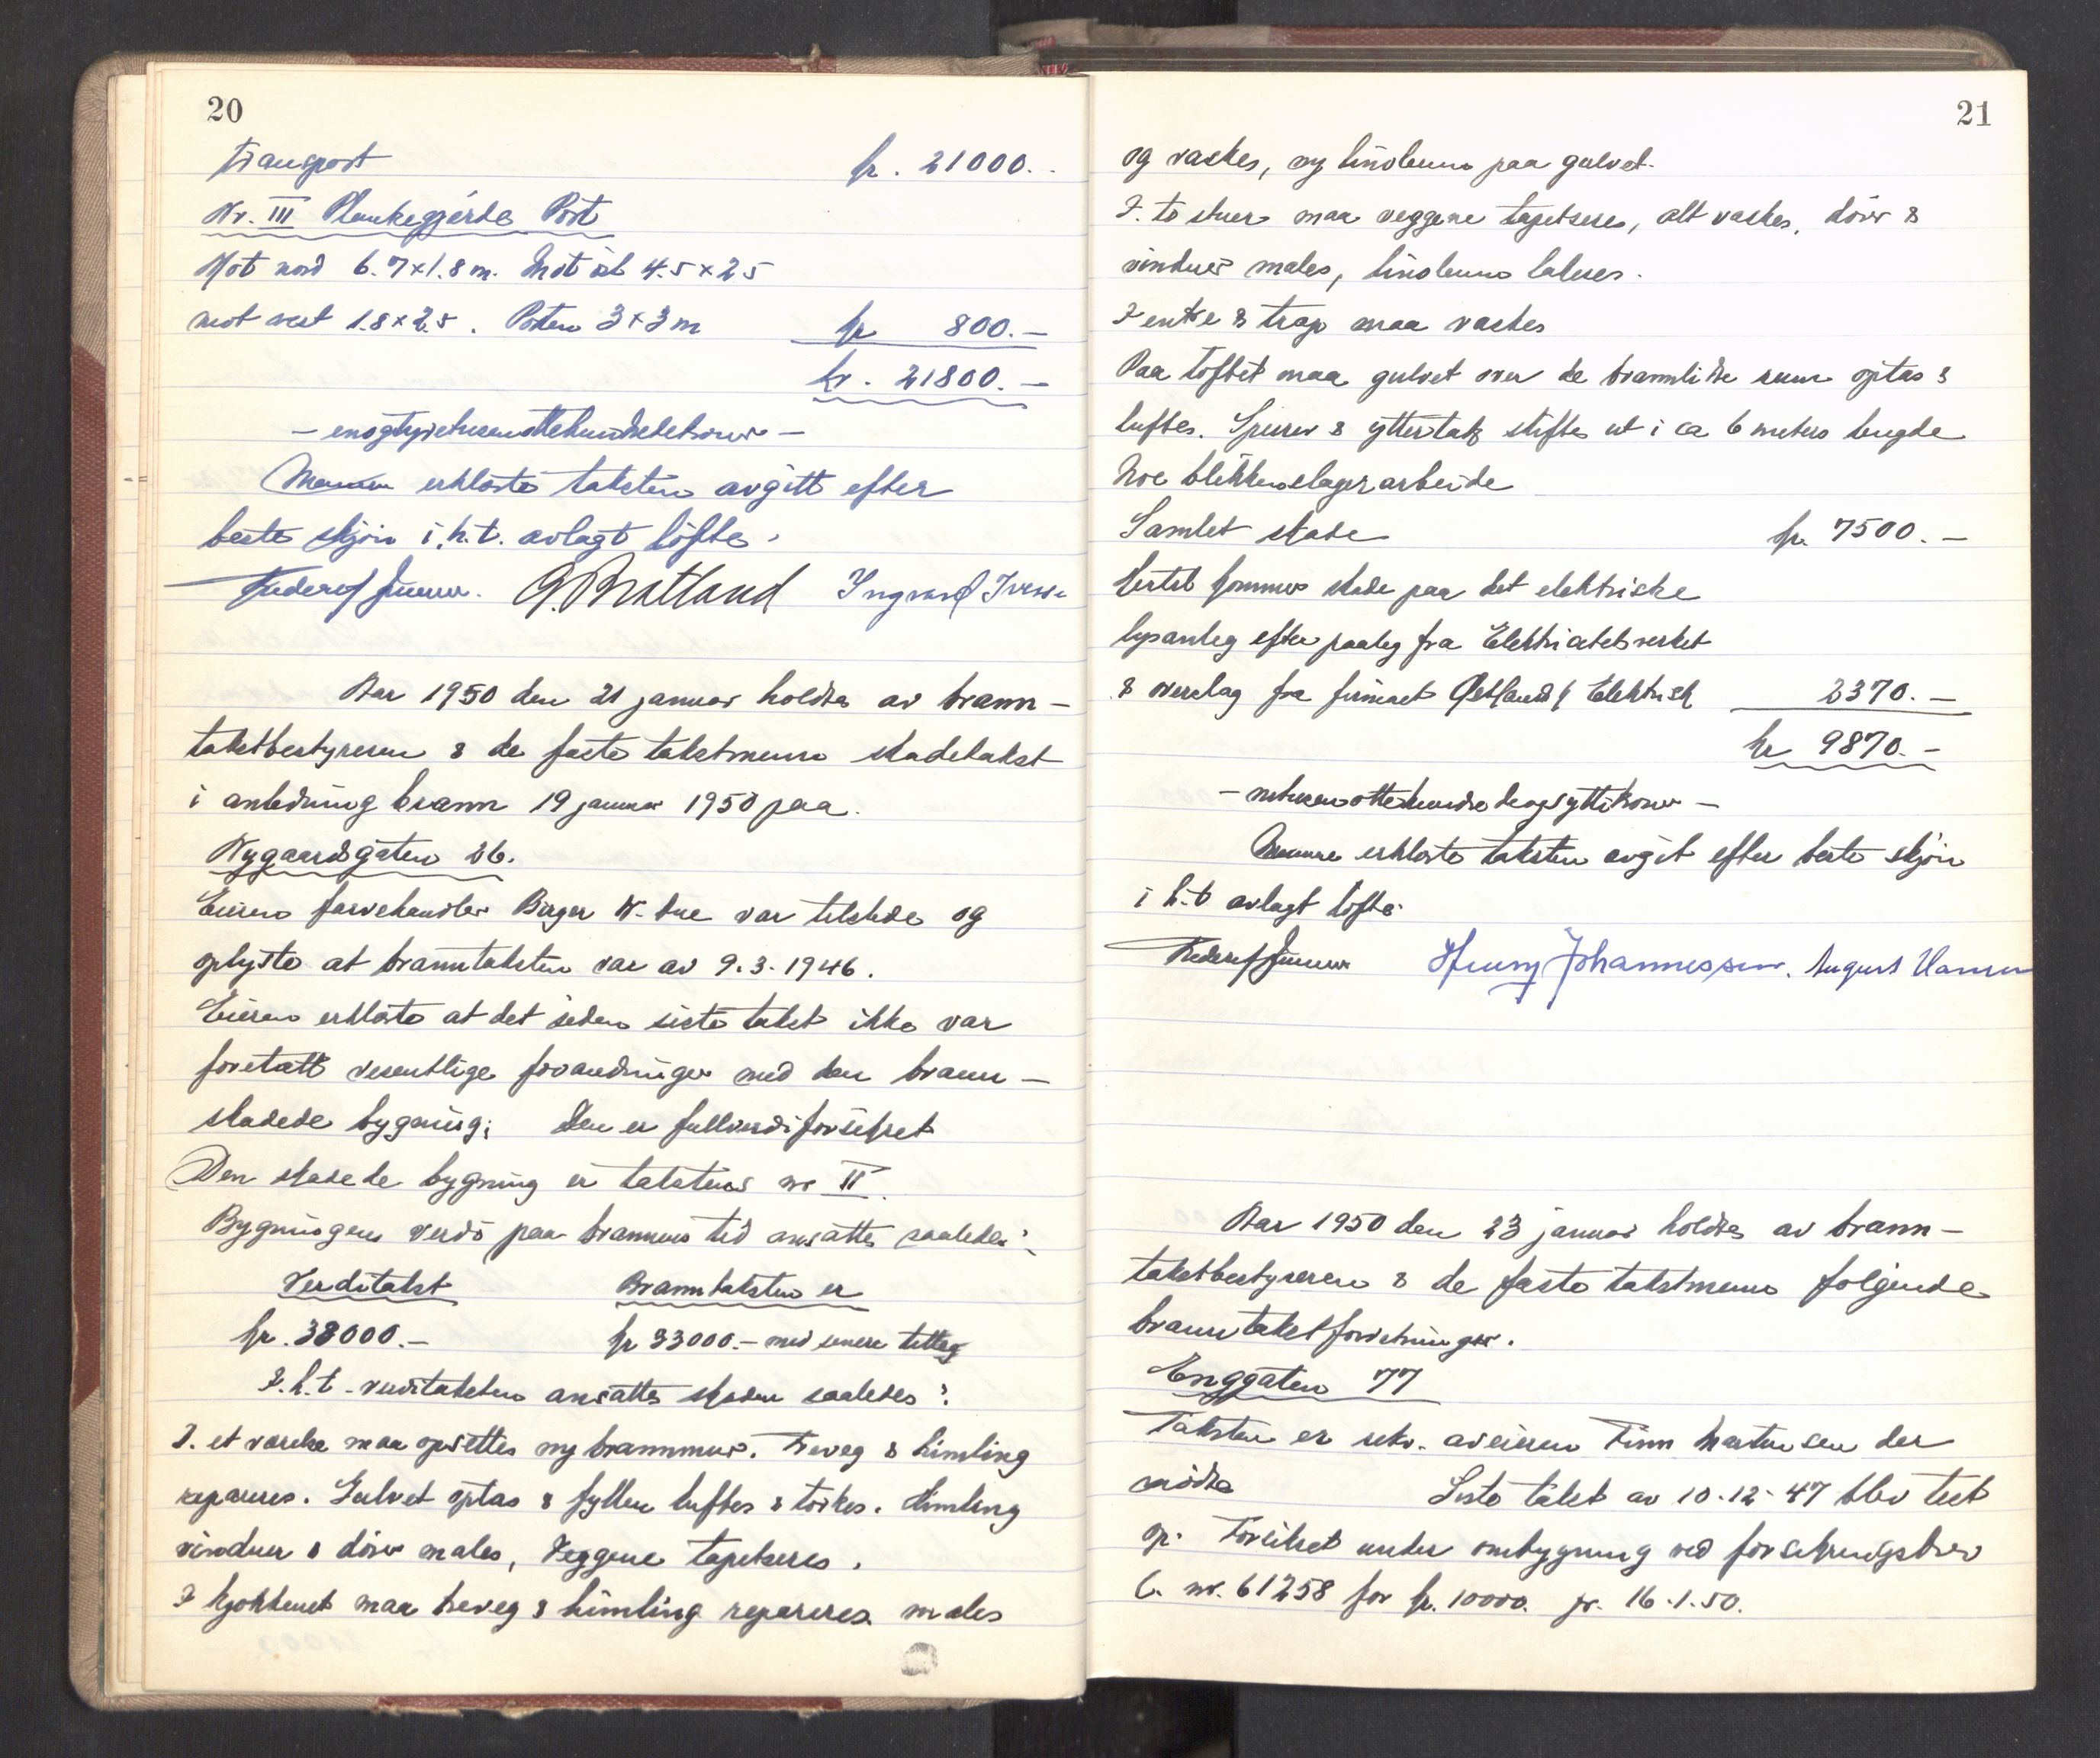 20
Transport kr. 21000.-
Nr. III Plankegjerde Port
Mot nord 6.7×1.8 m. Mot öst 4.5×2.5
mot vest 1.8×2.5. Porten 3×3 m kr 800.-
kr. 21800.-
- enogtyvetusenottehundredekroner -
Mennene erklærte taksten avgitt efter
beste skjön i.h.t. avlagt löfte.
G. Bratland Ingvard
Aar 1950 den 21 januar holdtes av brann-
takstbestyreren & de faste takstmenn skadetakst
i anledning brann 19 januar 1950 paa.
Nygaardsgaten 26.
Eieren farvehandler Birger W. Due var tilstede og
oplyste at branntaksten var av 9.3.1946.
Eieren erklærte at det siden siste takst ikke var
foretatt vesentlige forandringer med den brann-
skadede bygning; Den er fullverdiforsikret
Den skadede bygning er takstens nr II.
Bygningens verdi paa brannens tid ansattes saaledes:
Verditakst Branntaksten er
kr. 38000.- kr 33000.- med senere tillæg
I.h.t. verditaksten ansattes skaden saaledes:
I. et værelse maa opsettes ny brannmur. Treveg & himling
repareres. Gulvet optas & fyllen luftes & törkes. Himling
vinduer & dörer males, Veggene tapetseres.
I kjökkenet maa treveg & himling repareres males
21
og vaskes, ny linoleum paa gulvet.
I. to stuer maa veggene tapetseres, alt vaskes, dörer &
vinduer males, linoleum lakeres.
I entre & trap maa vaskes
Paa loftet maa gulvet over de brannlidte rum optas &
luftes. Sperrer & yttertak skiftes ut i ca 6 meters lengde
Noe blikkenslagerarbeide
Samlet skade kr. 7500.-
Hertil kommer skade paa det elektriske
lysanleg efter paaleg fra Elektricitetsverket
& overslag fra firmaet Østlandsk Elektrisk 2370.-
kr 9870.-
- nitusenottehundredeogsyttikroner -
Mennene erklærte taksten avgit efter beste skjön
i h.t. avlagt löfte.
Henry Johannessen. August Hansen
Aar 1950 den 23 januar holdtes av brann-
takstbestyreren & de faste takstmenn folgende
branntakstforretninger.
Enggaten 77
Taksten er rekv. av eieren Finn Martinsen der
mödte Siste takst av 10-12-47 blev lest
op. Forsikret under ombygning ved forsikringsbrev
C. nr. 61258 for kr. 10000. pr. 16.1.50.